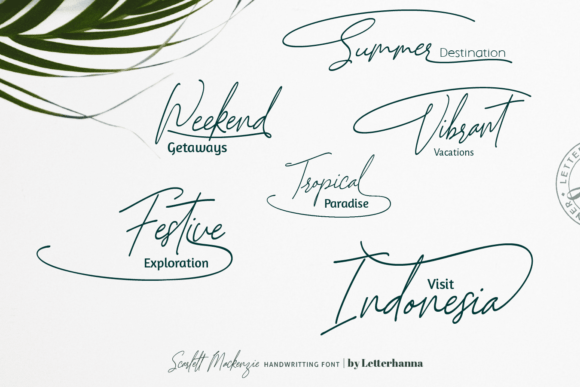 Summer Destination
Weekend
Getaways
Vibrant
Vacations
Tropical
Paradise
Festive
Exploration
Visit
Indonesia
Scarlett Mackenzie HANDWRITTING FONT | by Letterhanna